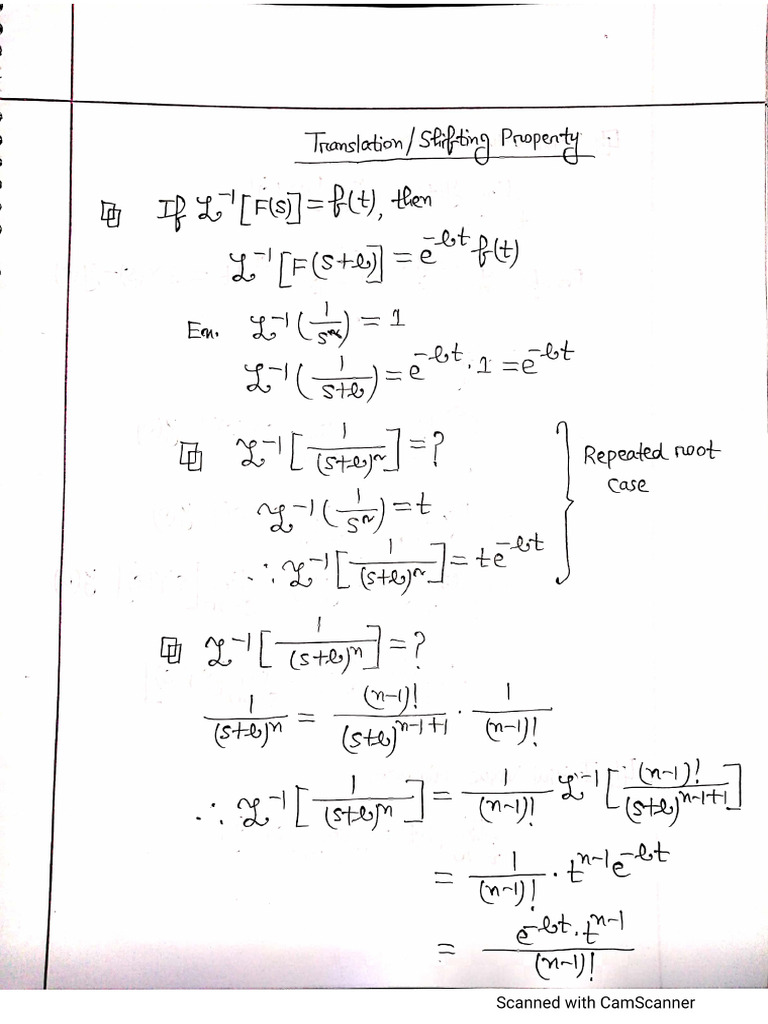 Translation/Shifting Property
If ℒ⁻¹[F(s)] = f(t), then
ℒ⁻¹[F(s+b)] = e^{-bt} f(t)
Ex. ℒ⁻¹(1/s) = 1
ℒ⁻¹(1/(s+b)) = e^{-bt} · 1 = e^{-bt}
ℒ⁻¹[1/(s+b)²] = ?
Repeated root
case
ℒ⁻¹(1/s²) = t
∴ ℒ⁻¹[1/(s+b)²] = te^{-bt}
ℒ⁻¹[1/(s+b)ⁿ] = ?
1/(s+b)ⁿ = (n-1)!/(s+b)^{n-1+1} · 1/(n-1)!
∴ ℒ⁻¹[1/(s+b)ⁿ] = 1/(n-1)! ℒ⁻¹[(n-1)!/(s+b)^{n-1+1}]
= 1/(n-1)! · t^{n-1} e^{-bt}
= e^{-bt} · t^{n-1}/(n-1)!
Scanned with CamScanner